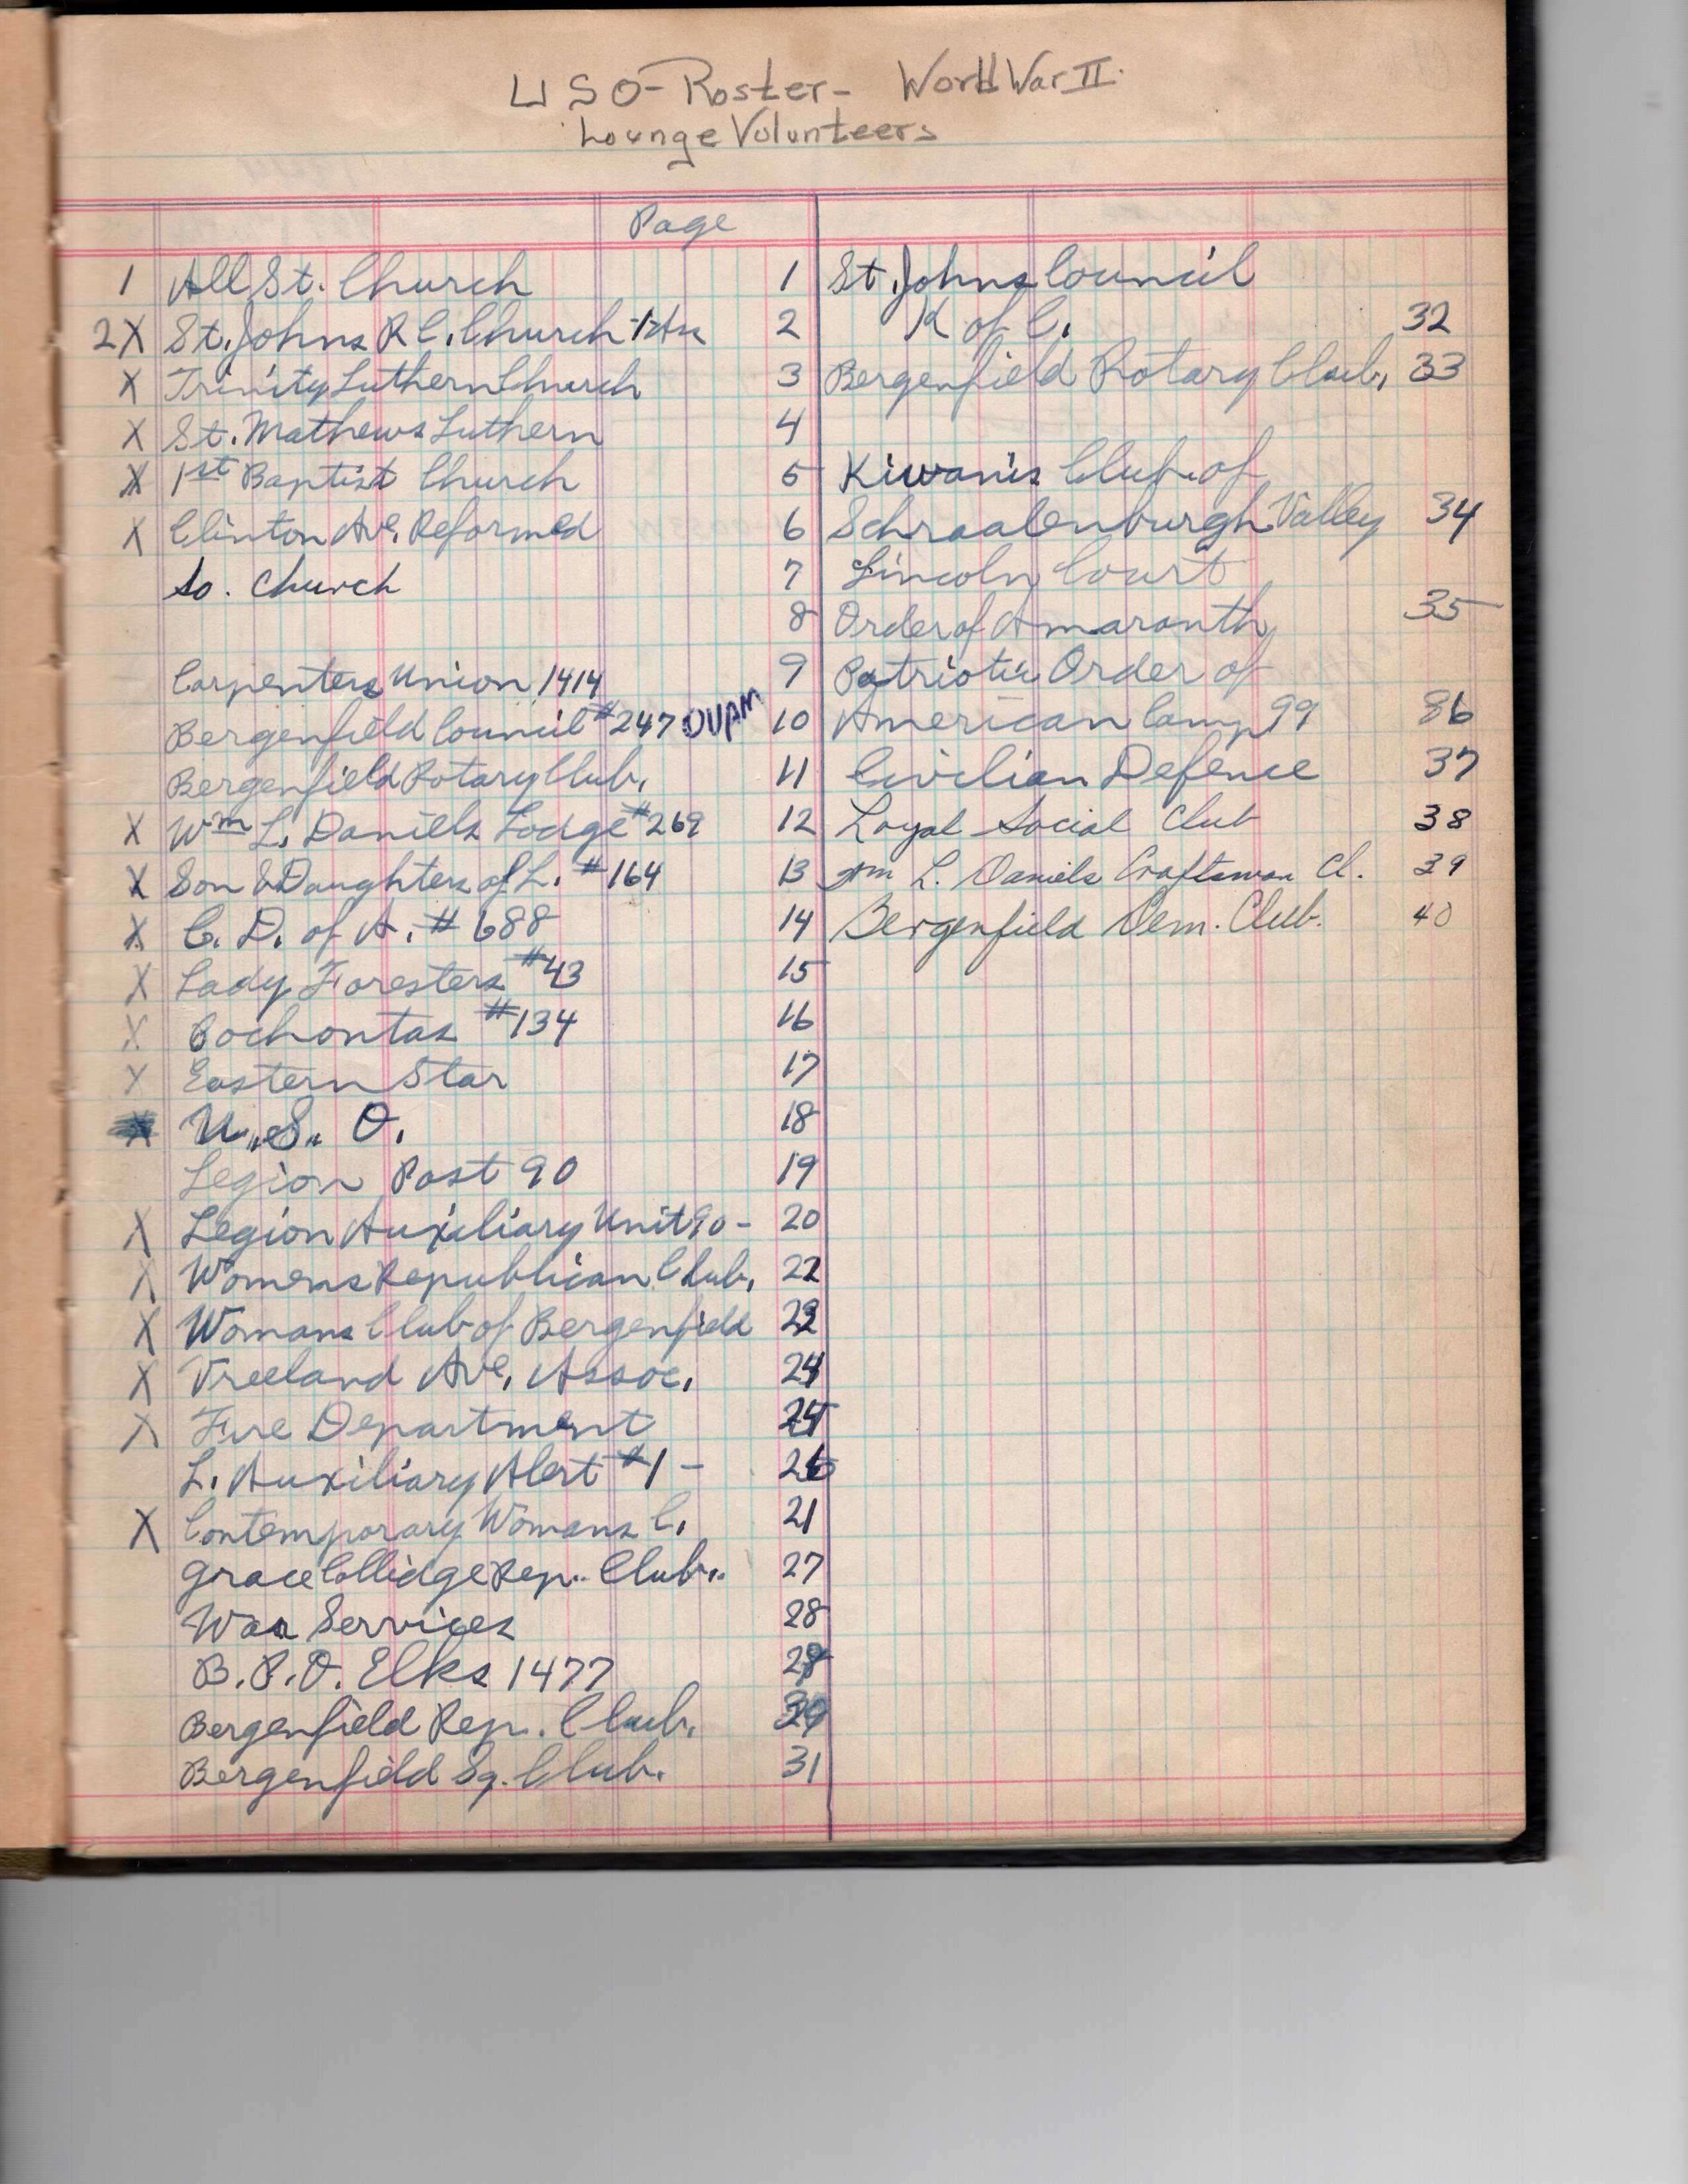 USO - Roster - World War II.
Lounge Volunteers
Page
1 All St. Church 1
2 X St. Johns R C. Church 2
X Trinity Luthern Church 3
X St. Mathews Luthern 4
X 1st Baptist Church 5
X Clinton Ave. Reformed 6
So. Church 7
8
Carpenters Union 1414 9
Bergenfield Council #247 OUAM 10
Bergenfield Rotary Club. 11
X Wm L. Daniels Lodge #269 12
X Son & Daughters of L. #164 13
X C. D. of A. # 688 14
X Lady Foresters #43 15
X Pochontas #134 16
X Eastern Star 17
X U. S. O. 18
Legion Post 90 19
X Legion Auxiliary Unit 90 - 20
X Womens Republican Club. 22
X Womans Club of Bergenfield 23
X Vreeland Ave. Assoc. 24
X Fire Department 25
L. Auxiliary Alert #1 - 26
X Contemporary Womans C. 21
Grace Collidge Rep. Club. 27
War Services 28
B. P. O. Elks 1477
Bergenfield Rep. Club.
Bergenfield Sq. Club. 31
St. Johns Council
K of C. 32
Bergenfield Rotary Club. 33
Kiwanis Club of
Schraalenburgh Valley 34
Lincoln Court
Order of Amaranth 35
Patriotic Order of
American Camp 99 36
Civilian Defence 37
Loyal Social Club 38
Wm L. Daniels Craftsman Cl. 39
Bergenfield Dem. Club. 40